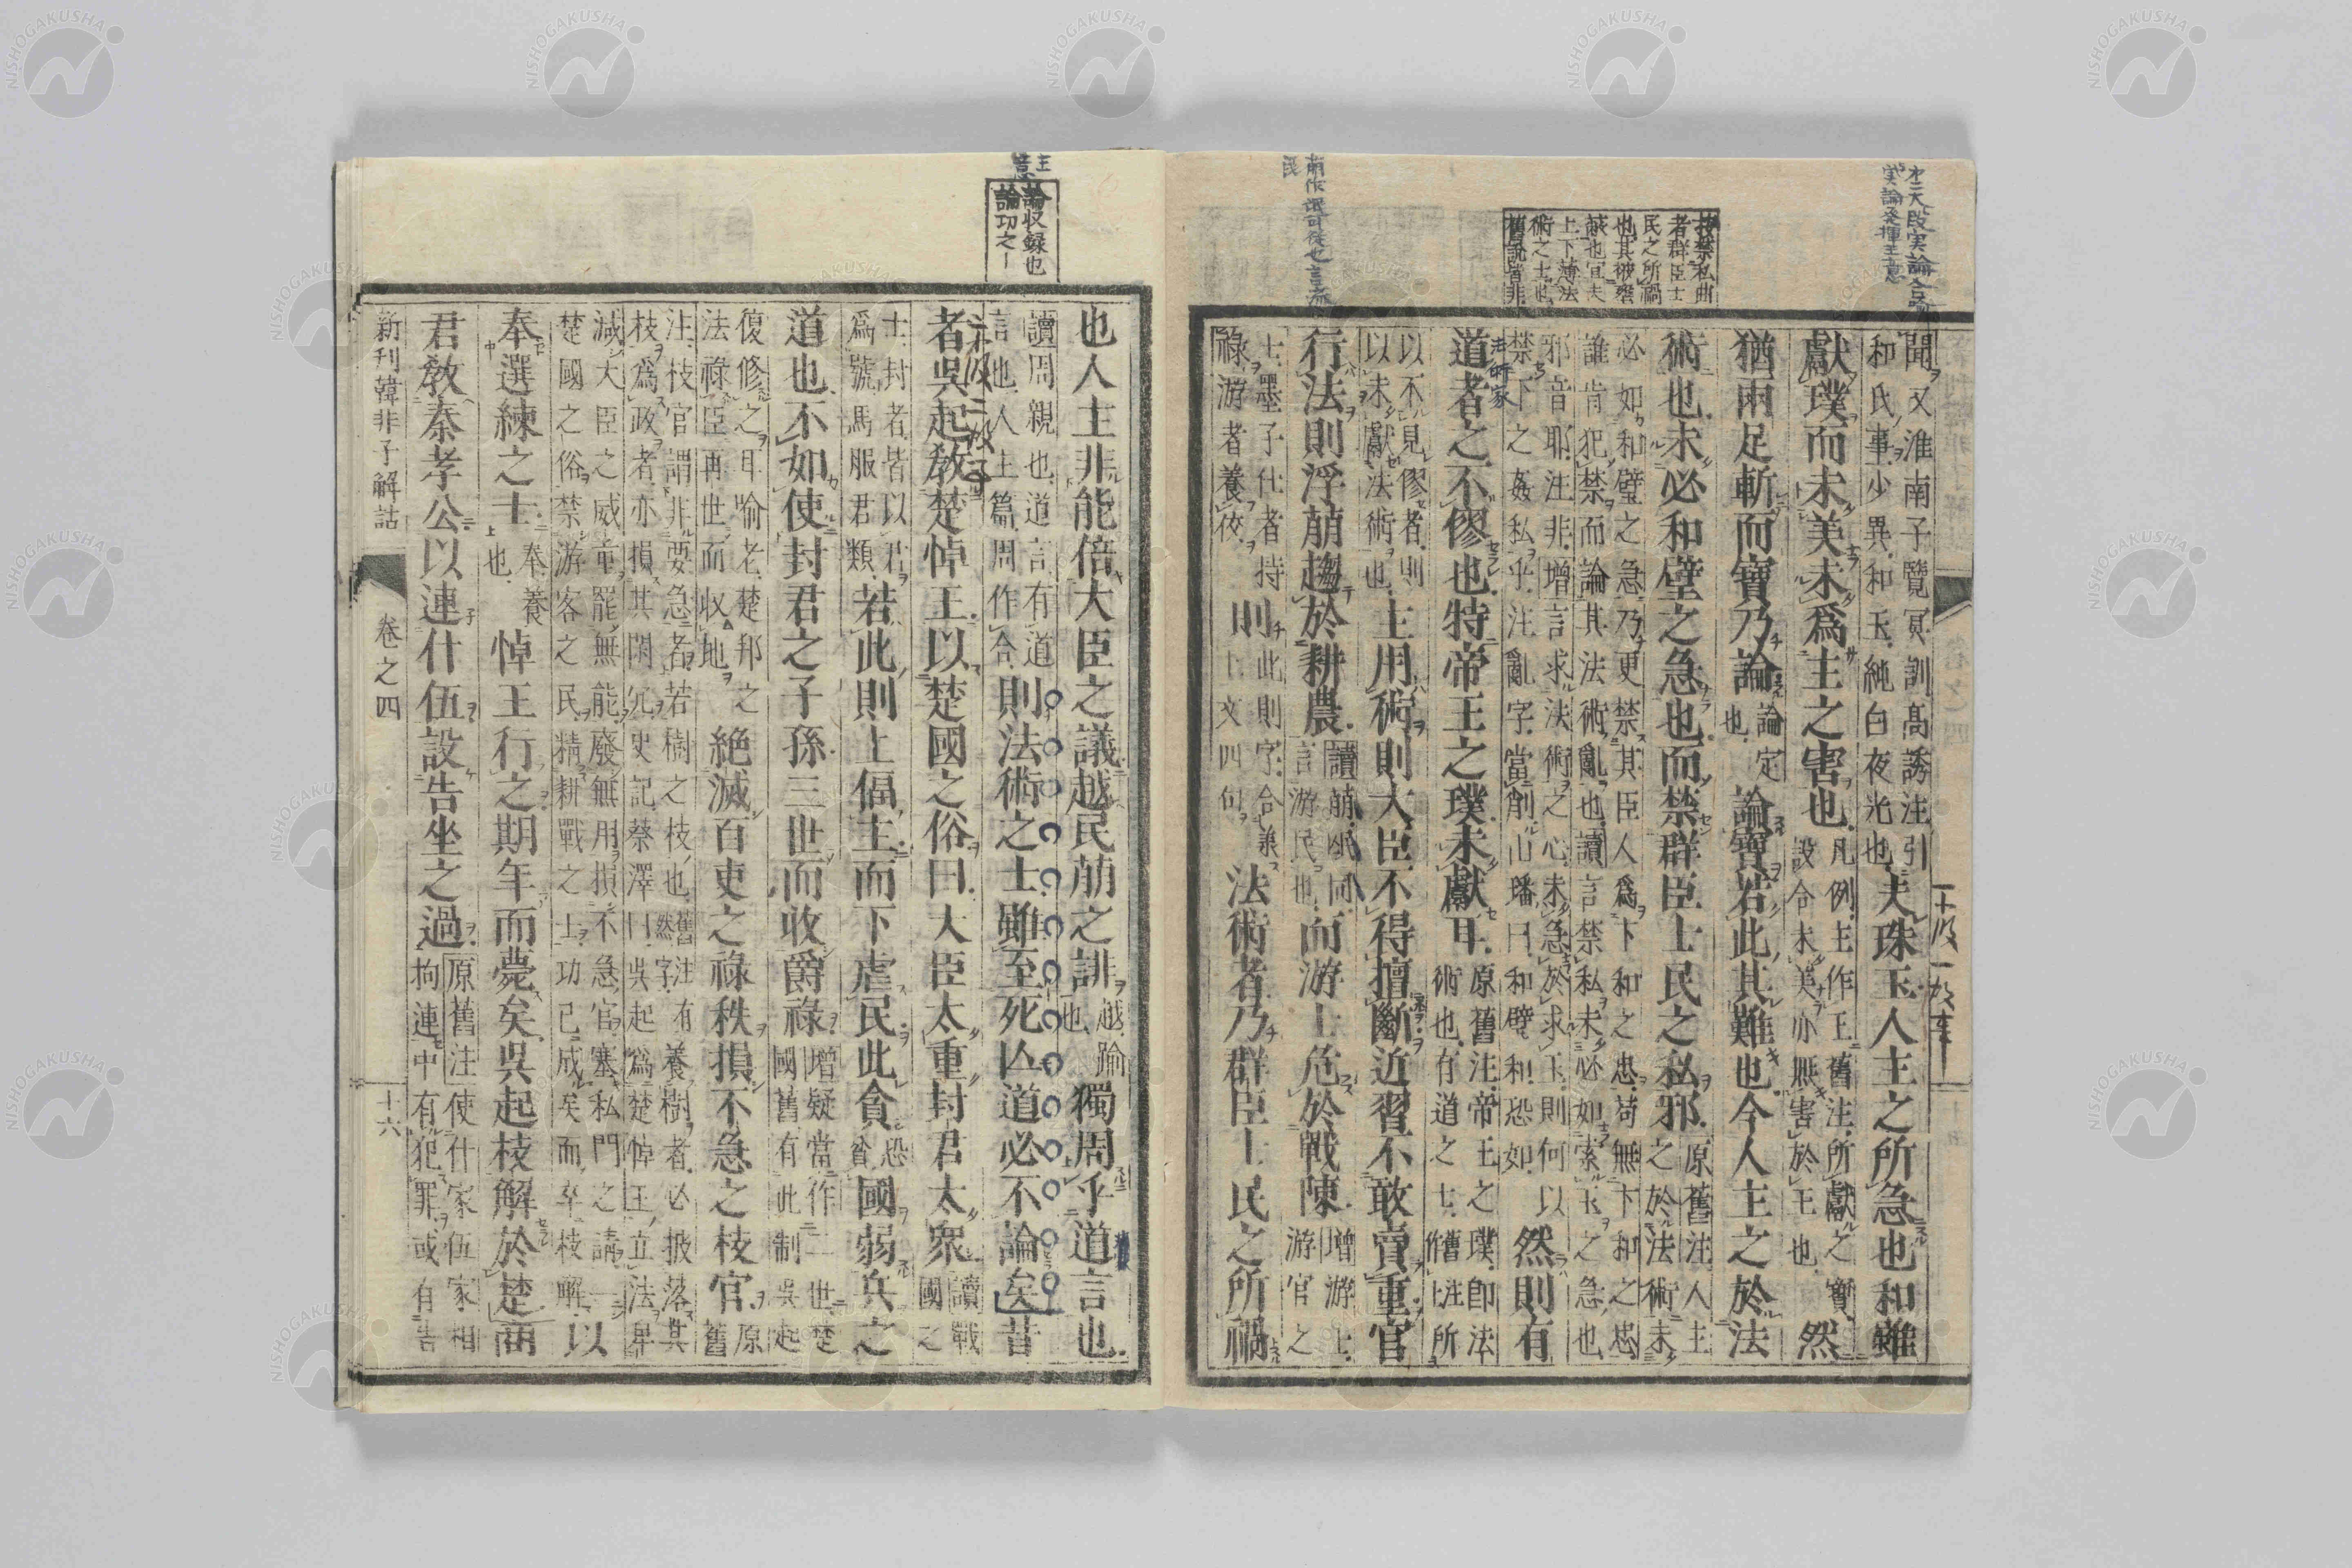 聞又淮南子覽冥訓高誘注引
和氏事少異和玉純白夜光也夫珠玉人主之所急也和雖
獻璞而未美未爲主之害也凡例主作王舊注所獻之寶然
設令未美亦無害於王也
猶兩足斬而寶乃論論定也論寶若此其難也今人主之於法
術也未必和璧之急也而禁群臣士民之私邪原舊注人主之於法術未
必如和璧之急乃更禁其臣人爲下和之忠苟無下和之忠
誰肯犯禁而論其法術亂也讀言禁私未必如索玉之急也
邪音耶注非增言求法術之心未急於求玉則何以
禁下之姦私乎注亂字當削山璠曰和璧和恐如然則有
道者之不僇也特帝王之璞未獻耳原舊注帝王之璞卽法
術也有道之士舊注所
以不見僇者則
以未獻法術也主用術則大臣不得擅斷近習不敢賣重官
行法則浮萠趨於耕農讀萠氓同言游民也而游士危於戰陳增游士游官之
士墨子仕者持
祿游者養佼則此則字合兼上文四句法術者乃群臣士民之所禍
也人主非能倍大臣之議越民萠之誹越踰也獨周乎道言也
讀周親也道言有道
言也人主篇周作合則法術之士雖至死亾道必不論矣昔
者吳起敎楚悼王以楚國之俗曰大臣太重封君太衆讀戰國之
士封者皆以君
爲號馬服君類若此則上偪主而下虐民此貪恐貧國弱兵之
道也不如使封君之子孫三世而收爵祿增疑當作二世楚
國舊有此制吳起
復修之耳喻老楚邦之
法祿臣再世而收地絶滅百吏之祿秩損不急之枝官原舊
注枝官謂非要急者若樹之枝也舊注有養樹者必披落其
枝爲政者亦損其閑冗史記蔡澤曰吳起爲楚悼王立法卑
減大臣之威重罷無能廢無用損不急官塞私門之請一
楚國之俗禁游客之民精耕戰之士功已成矣而卒枝解以
奉選練之士奉養也悼王行之期年而薨矣吳起枝解於楚商
君敎秦孝公以連什伍設告坐之過原舊注使什家伍家相
拘連中有犯罪或有告
新刊韓非子解詁
卷之四
十六
按禁私曲
者群臣士
民之所禍
術之士也
舊說皆非
論收錄也
論功之
主意